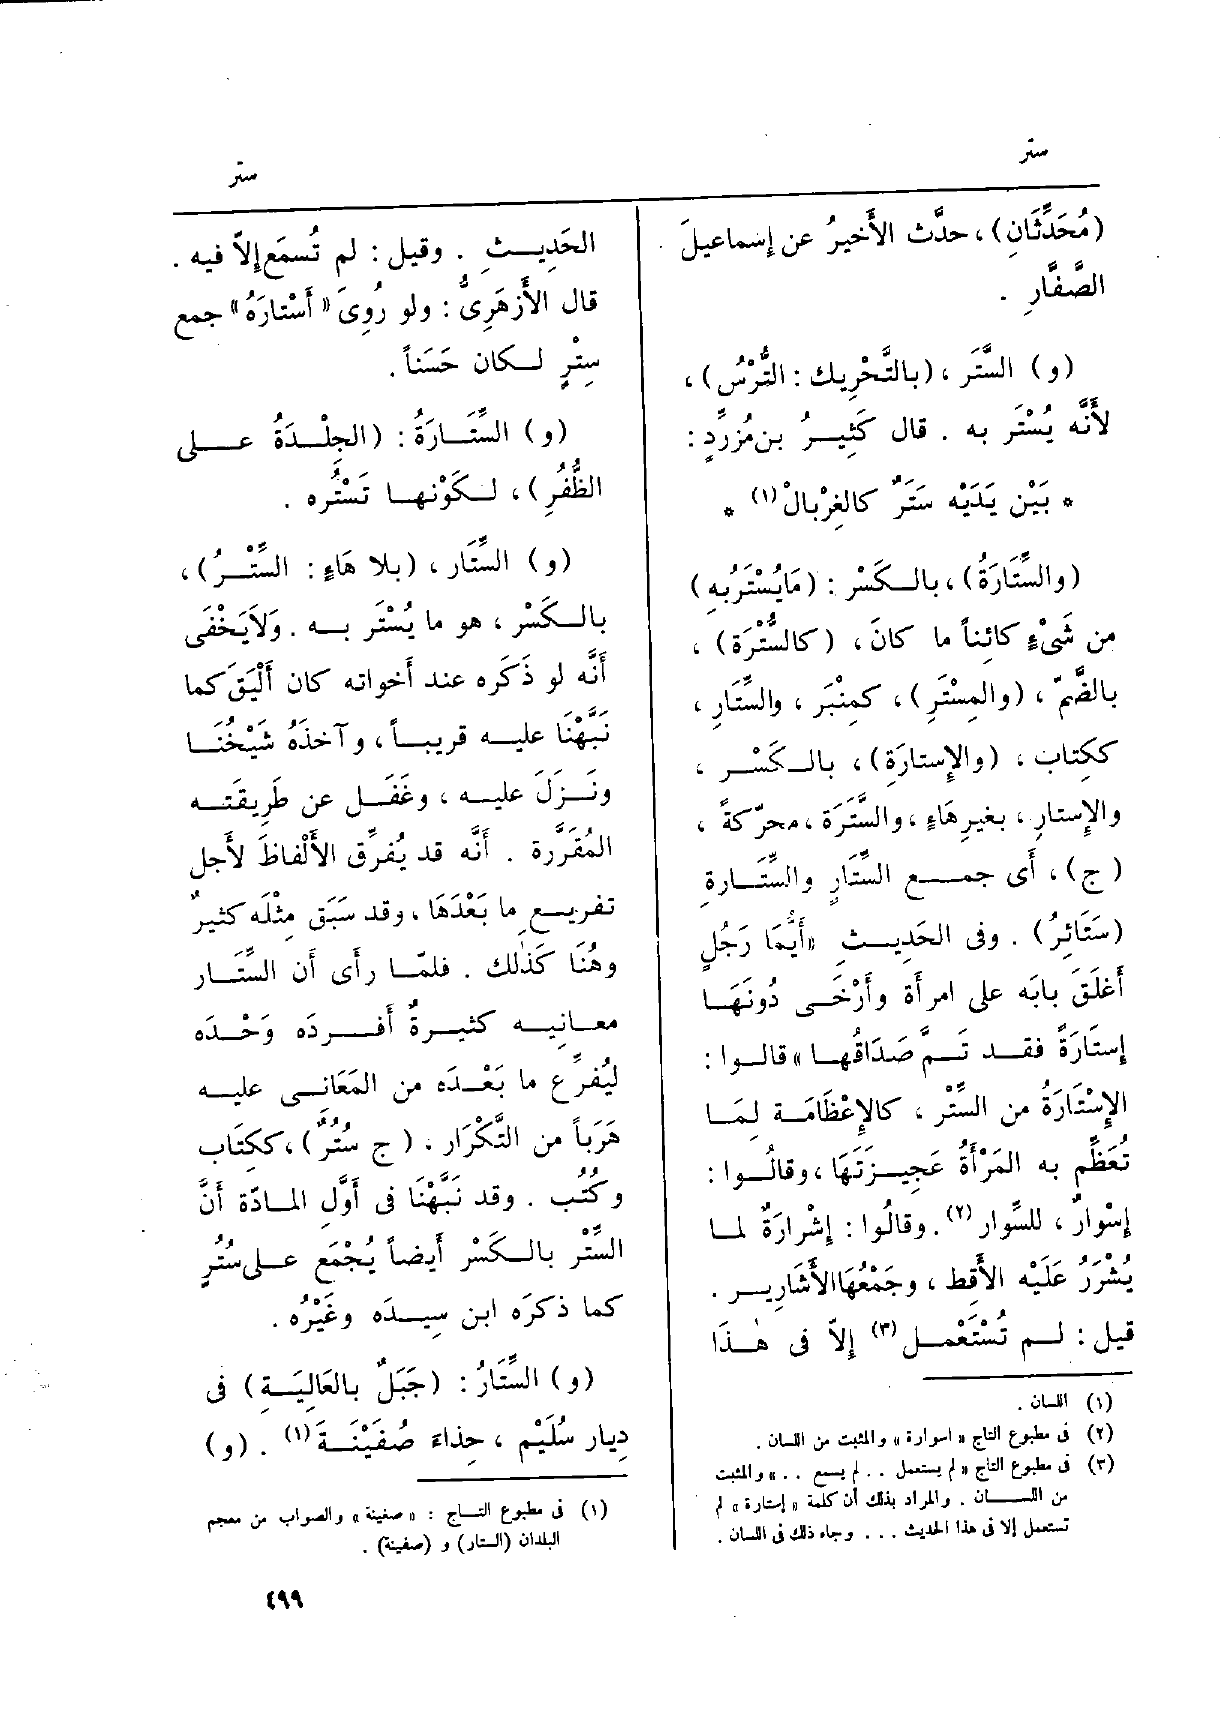 ستر
ستر
(مُحَدِّثَانِ) ، حدَّث الأَخيرُ عن إِسْماعيلَ
الصَّفَّارِ .
(و) السَّتَر ، (بالتَّحْرِيك : التُّرْسُ) ،
لأَنَّه يُسْتَر به . قال كَثِيرُ بن مُزرِّدٍ :
* بَيْن يَدَيْه سَتَرٌ كالغِرْبالْ (١) *
(والسِّتَارَةُ) ، بالكَسْر : (مَا يُسْتَرُ بِهِ)
من شَىْءٍ كائِناً ما كانَ ، (كالسُّتْرَة) ،
بالضَّمّ ، (والمِسْتَرِ) ، كمِنْبَر ، والسِّتَارِ ،
ككِتاب ، (والإِستارَةِ) ، بالكَسْر ،
والإِستارِ ، بغيرِ هَاءٍ ، والسَّتَرَة ، محرّكةً ،
(ج) ، أَى جمع السِّتَارِ والسِّتَارةِ
(سَتَائِرُ) . وفى الحَدِيث «أَيُّمَا رَجُلٍ
أَغلَقَ بابَه على امرأَة وأَرْخَى دُونَهَا
إِستَارَةً فقد تَمَّ صَدَاقُها» قالوا :
الإِسْتَارَةُ من السِّتْر ، كالإِعْظَامَة لِمَا
تُعَظِّم به المَرْأَةُ عَجِيزَتَهَا ، وقالُوا :
إِسْوارٌ ، للسِّوار (٢) . وقالُوا : إِشْرارَةٌ لما
يُشْرَرُ عَلَيْه الأَقِط ، وجَمْعُهَا الأَشَارِير .
قيل : لم تُسْتَعْمل (٣) إِلاّ فى هٰذَا
(١) اللسان .
(٢) فى مطبوع التاج « اسوارة » والمثبت من اللسان .
(٣) فى مطبوع التاج « لم يستعمل .. لم يسمع .. » والمثبت
من اللسان . والمراد بذلك أن كلمة « إستارة » لم
تستعمل إلا فى هذا الحديث ... وجاء ذلك فى اللسان .
الحَدِيثِ . وقيل : لم تُسمَع إِلاّ فيه .
قال الأَزهَرِىُّ : ولو رُوِىَ « أَسْتارَهُ » جمع
سِتْرٍ لكان حَسَناً .
(و) السِّتَارَةُ : (الجِلْدَةُ على
الظُّفُرِ) ، لكَوْنها تَسْتُره .
(و) السِّتَار ، (بلا هَاءٍ : السِّتْرُ) ،
بالكَسْر ، هو ما يُسْتَر به . ولاَ يَخْفَى
أَنَّه لو ذَكَره عند أَخواته كان أَلْيَقَ كما
نَبَّهْنَا عليه قريباً ، وآخذَهُ شَيْخُنَا
ونَزَلَ عليه ، وغَفَل عن طَرِيقته
المُقَرَّرة . أَنَّه قد يُفرِّق الأَلْفاظَ لأَجل
تفريع ما بَعْدَهَا ، وقد سَبَق مِثْلَه كثيرٌ
وهُنَا كَذٰلك . فلمّا رأَى أَن السِّتَار
معانيه كثيرةٌ أَفردَه وَحْدَه
ليُفرِّع ما بَعْدَه من المَعَانى عليه
هَرَباً من التَّكْرَار . ( ج سُتُرٌ ) ، ككِتَاب
وكُتُب . وقد نَبَّهْنَا فى أَوَّلِ المادّة أَنَّ
السِّتْر بالكَسْر أَيضاً يُجْمَع على سُتُرٍ
كما ذكرَه ابن سِيدَه وغَيْرُه .
(و) السِّتَارُ : (جَبَلٌ بالعَالِيَةِ) فى
دِيار سُلَيْم ، حِذاءَ صُفَيْنَةَ (١) . (و)
(١) فى مطبوع التاج : « صفينة » والصواب من معجم
البلدان (الستار) و (صفينة) .
٤٩٩